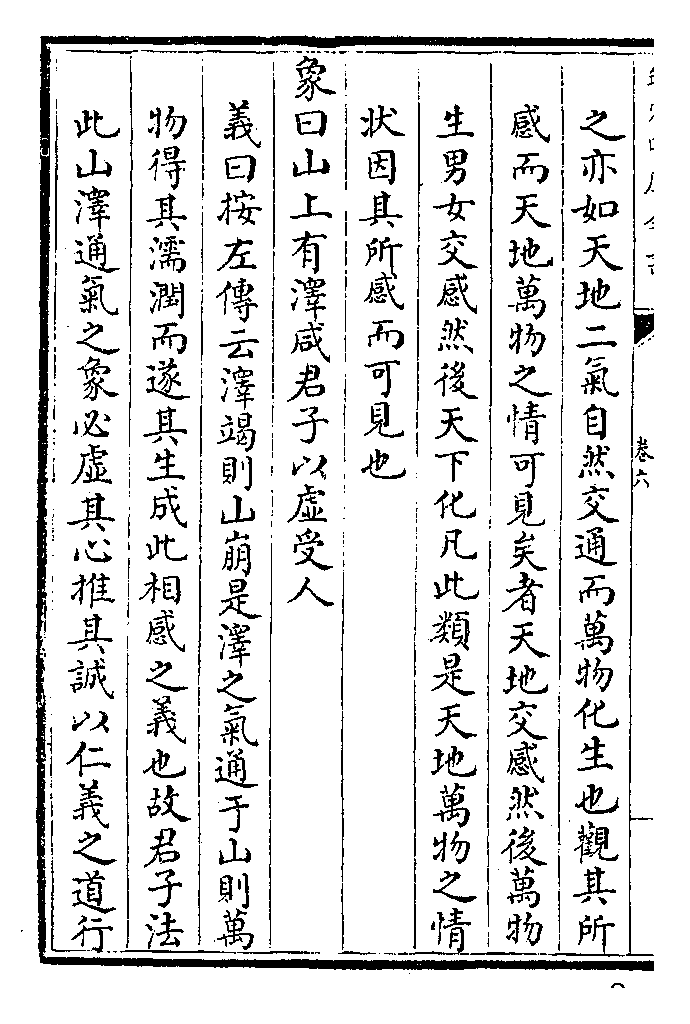 卷六
之亦如天地二氣自然交通而萬物化生也觀其所
感而天地萬物之情可見矣者天地交感然後萬物
生男女交感然後天下化凡此類是天地萬物之情
状因其所感而可見也
象曰山上有澤咸君子以虛受人
義曰按左傳云澤竭則山崩是澤之氣通于山則萬
物得其濡潤而遂其生成此相感之義也故君子法
此山澤通氣之象必虛其心推其誠以仁義之道行